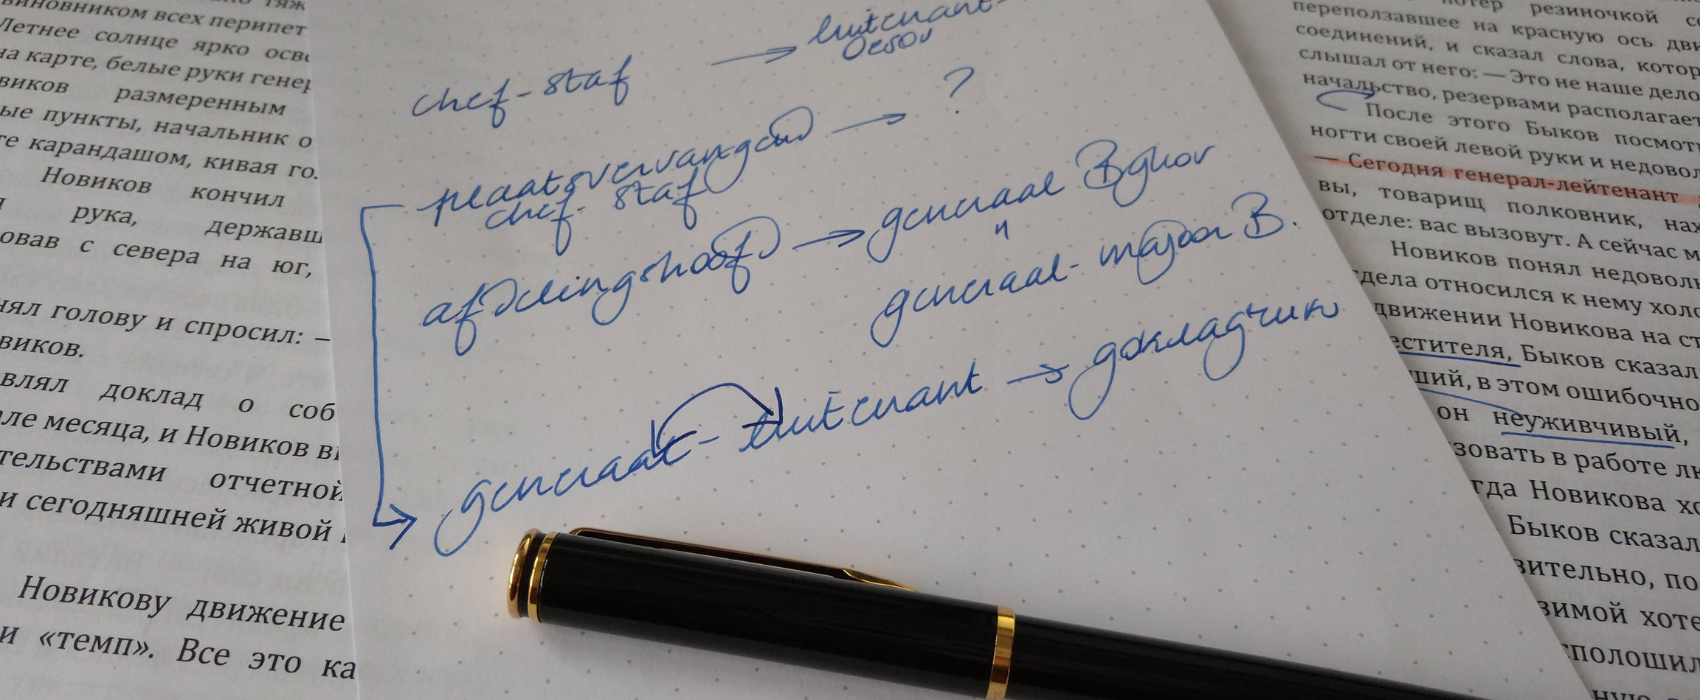 виновником всех перипет
Летнее солнце ярко осв
на карте, белые руки генер
виков размеренным
ые пункты, начальник о
те карандашом, кивая го.
Новиков кончил
рука, державш
овав с севера на юг,
нял голову и спросил: –
виков.
влял доклад о соб
ле месяца, и Новиков в
тельствами отчетной
и сегодняшней живой
Новикову движение
и «темп». Все это ка
luitenant-
chef-staf →
plaatsvervangend → ?
chef-staf
afdelingshoofd → generaal Bykov
"
generaal-majoor B.
generaal-luitenant → докладчик
резиночкой
переползавшее на красную ось дви
соединений, и сказал слова, котор
слышал от него: — Это не наше дело
начальство, резервами располагает
После этого Быков посмотр
ногти своей левой руки и недовол
— Сегодня генерал-лейтенант
вы, товарищ полковник, нах
отделе: вас вызовут. А сейчас м
Новиков понял недоволь
дела относился к нему холо
движении Новикова на ст
естителя, Быков сказал
ший, в этом ошибочно
он неуживчивый,
зовать в работе лю
гда Новикова хо
Быков сказал
зительно, по
зимой хоте
сполошил